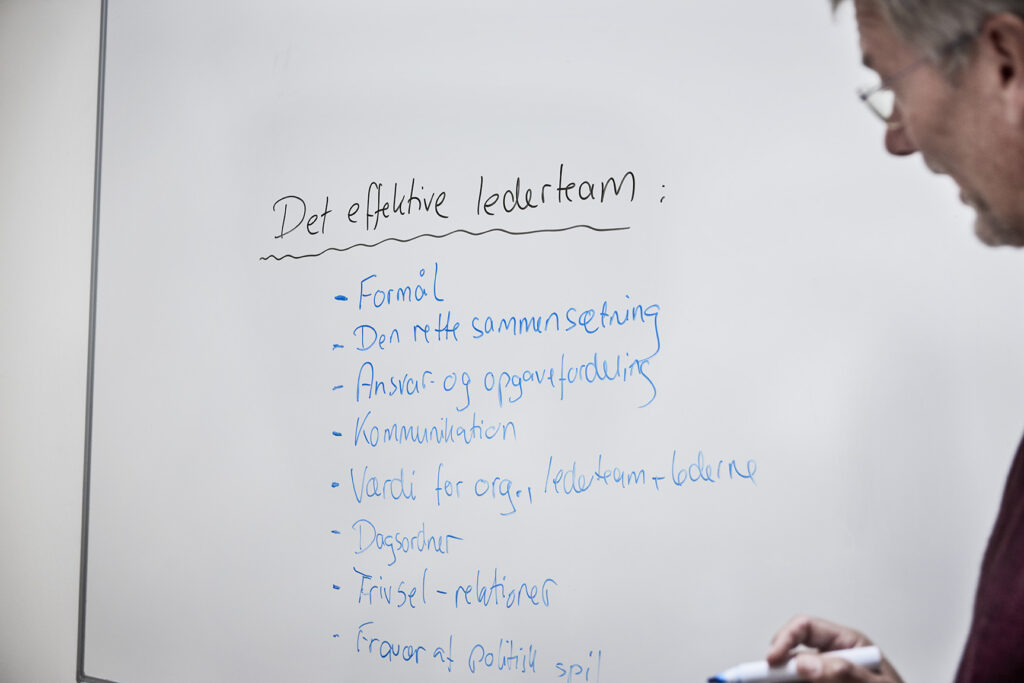 Det effektive lederteam :
- Formål
- Den rette sammensætning
- Ansvar- og opgavefordeling
- Kommunikation
- Værdi for org., lederteam + lederne
- Dagsordner
- Trivsel - relationer
- Fravær af politisk spil